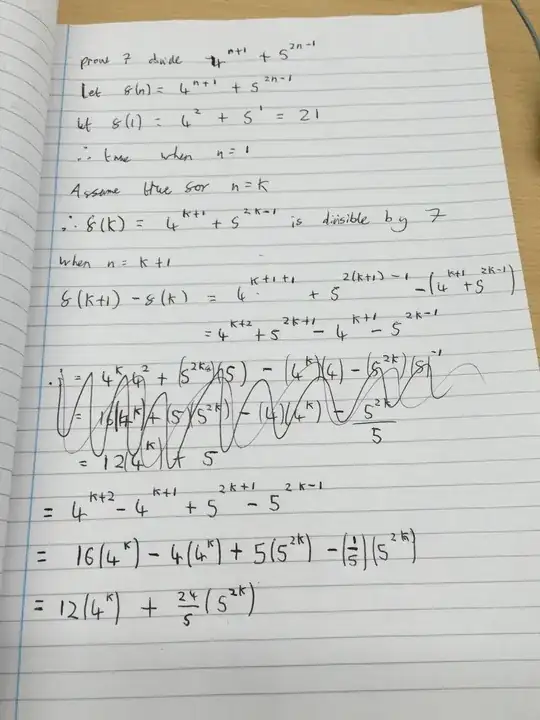 prove 7 divide 4^{n+1} + 5^{2n-1}
Let f(n) = 4^{n+1} + 5^{2n-1}
let f(1) = 4^2 + 5^1 = 21
∴ true when n = 1
Assume true for n = k
∴ f(k) = 4^{k+1} + 5^{2k-1} is divisible by 7
when n = k+1
f(k+1) - f(k) = 4^{k+1+1} + 5^{2(k+1)-1} - (4^{k+1} + 5^{2k-1})
= 4^{k+2} + 5^{2k+1} - 4^{k+1} - 5^{2k-1}
= 4^k 4^2 + (5^{2k})(5) - (4^k)(4) - (5^{2k})(5)^{-1}
= 16(4^k) + (5)(5^{2k}) - (4)(4^k) - \frac{5^{2k}}{5}
= 12(4^k) + 5
= 4^{k+2} - 4^{k+1} + 5^{2k+1} - 5^{2k-1}
= 16(4^k) - 4(4^k) + 5(5^{2k}) - (\frac{1}{5})(5^{2k})
= 12(4^k) + \frac{24}{5}(5^{2k})